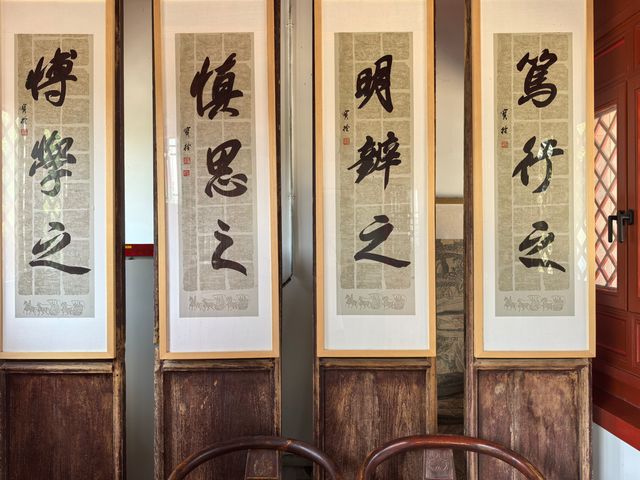 博學之
慎思之
明辨之
篤行之